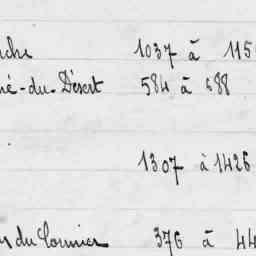 1037 à 115
né-du-Désert 584 à 688
1307 à 1426
du Cormier 376 à 44